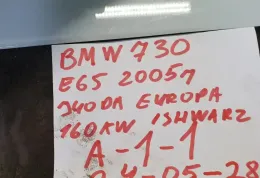 BMW 730
E65 2005г
240DA EUROPA
160KW ISHWARZ
A-1-1
24-05-28